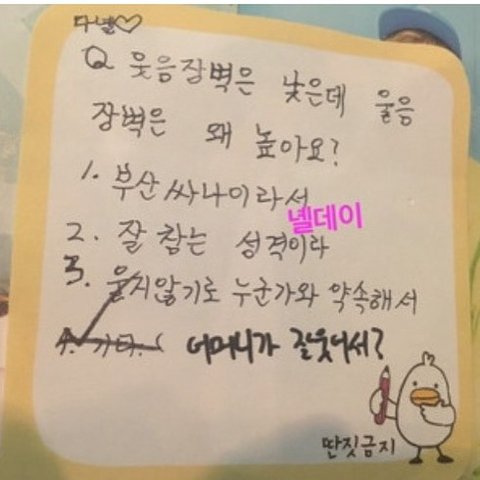 다녤♡
Q 웃음장벽은 낮은데 울음
장벽은 왜 높아요?
1. 부산싸나이라서
녤데이
2. 잘 참는 성격이라
3. 울지않기로 누군가와 약속해서
4. 기타. ( 어머니가 잘웃어서?
딴짓금지